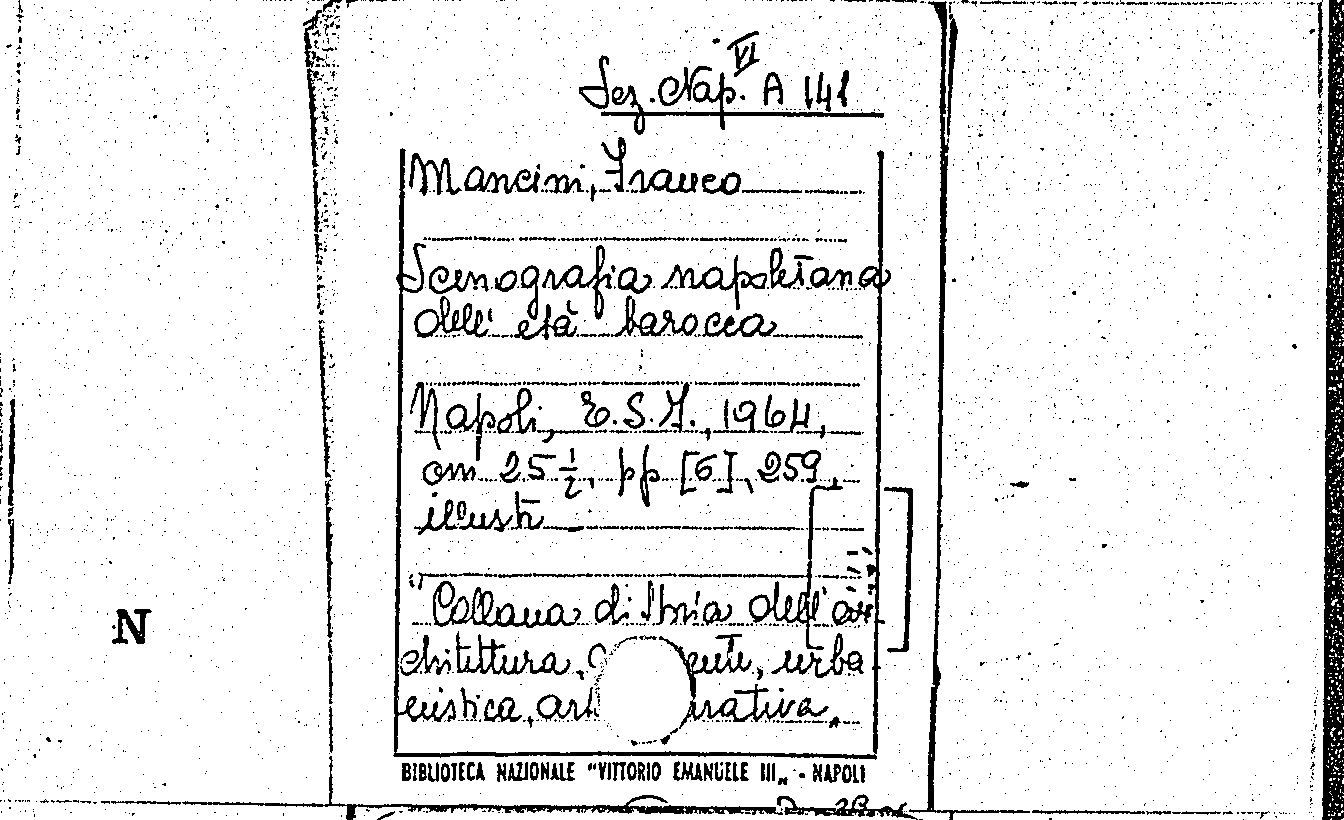 VI
Sez. Nap. A 141
Mancini, Franco
Scenografia napoletana
dell'età barocca
Napoli, E.S.I., 1964,
cm 25 1/2, pp [6], 259,
illustr
"Collana di Storia dell'ar
chitettura, urba
nistica, art
N
BIBLIOTECA NAZIONALE "VITTORIO EMANUELE III„ - NAPOLI